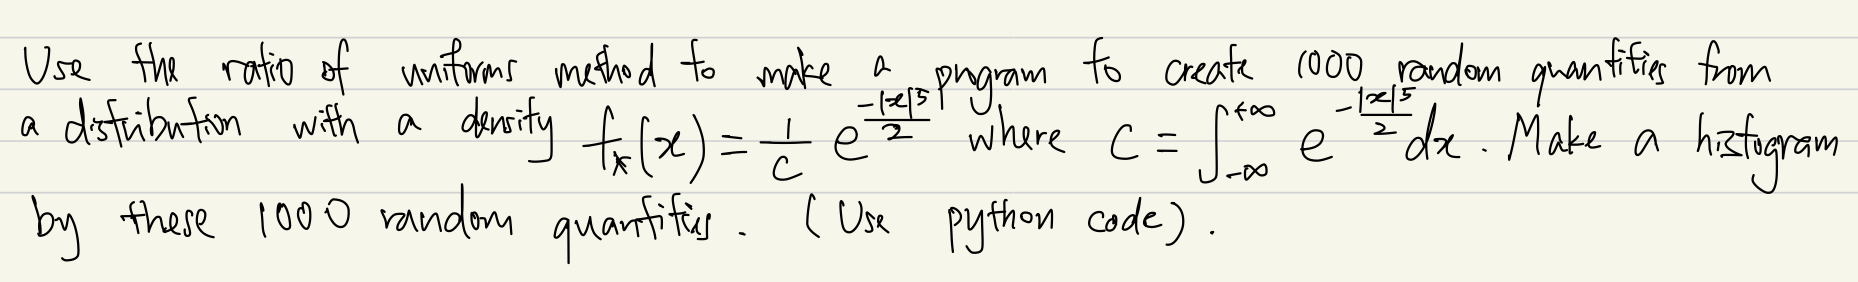 Use the ratio of uniforms method to make a program to create 1000 random quantities from
a distribution with a density fₓ(x) = 1/c e^(-|x|⁵/2) where c = ∫_{-∞}^{+∞} e^(-|x|⁵/2) dx. Make a histogram
by these 1000 random quantities. (Use python code).